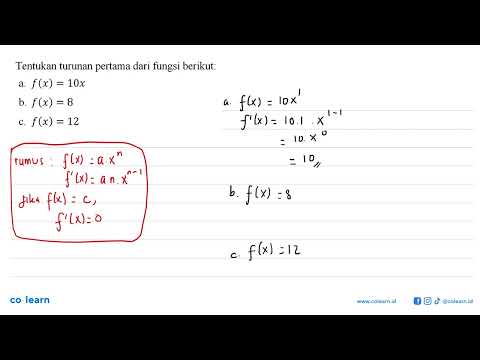 Tentukan turunan pertama dari fungsi berikut:
a. f(x) = 10x
b. f(x) = 8
c. f(x) = 12
rumus : f(x) = a.xⁿ
f'(x) = a n. xⁿ⁻¹
jika f(x) = c,
f'(x) = 0
a. f(x) = 10x¹
f'(x) = 10.1 . x¹⁻¹
= 10. x⁰
= 10,,
b. f(x) = 8
c. f(x) = 12
co learn
www.colearn.id
@colearn.id